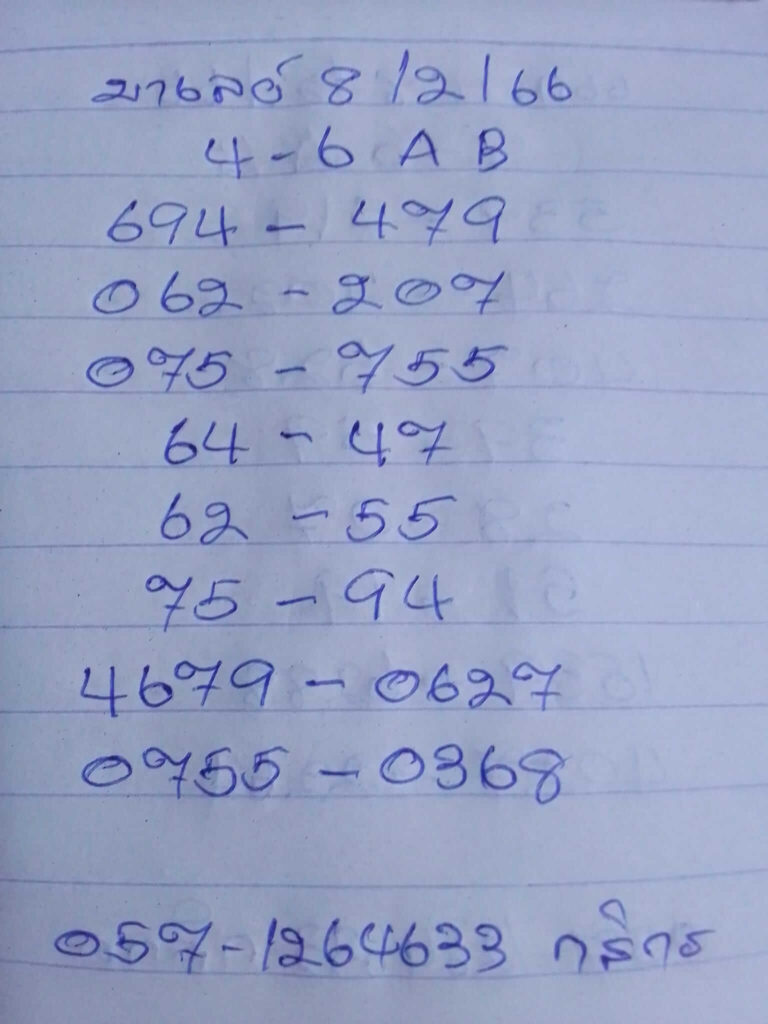 มาเลย์ 8/2/66
4-6 A B
694 - 479
062 - 207
075 - 755
64 - 47
62 - 55
75 - 94
4679 - 0627
0755 - 0368
057-1264633 กสิกร